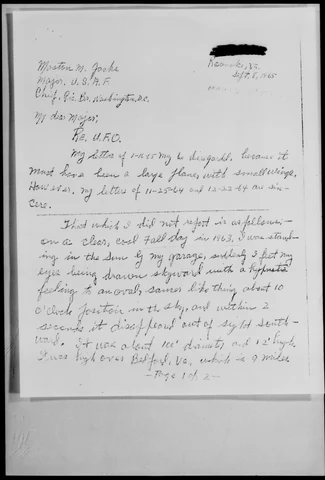 Roanoke, Va.
Sept. 8, 1965
Maston M. Jacks
Major, U.S.A.F.
Chief, Pic. Br. Washington, D.C.
My dear Major;
Re. U.F.O.
My letter of 1-11-65 may be disregard, because it
must have been a large plane, with small wings.
However, my letters of 11-25-64 and 12-22-64 are sin-
cere.
That which I did not report is as follows-
on a clear, cool Fall day in 1963, I was stand-
ing in the Sun by my garage, suddenly I felt my
eyes being drawn skyward with a hypnotic
feeling to an oval, saucer like thing about 10
o'clock position in the sky, and within 2
seconds it disappeared out of sight South-
ward. It was about 100' diameter and 12' high.
It was high over Bedford, Va, which is 9 miles
-Page 1 of 2-